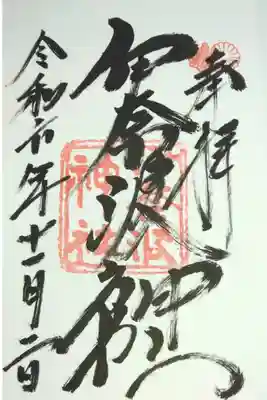 奉拝
伊奈波神社
令和六年十一月二日